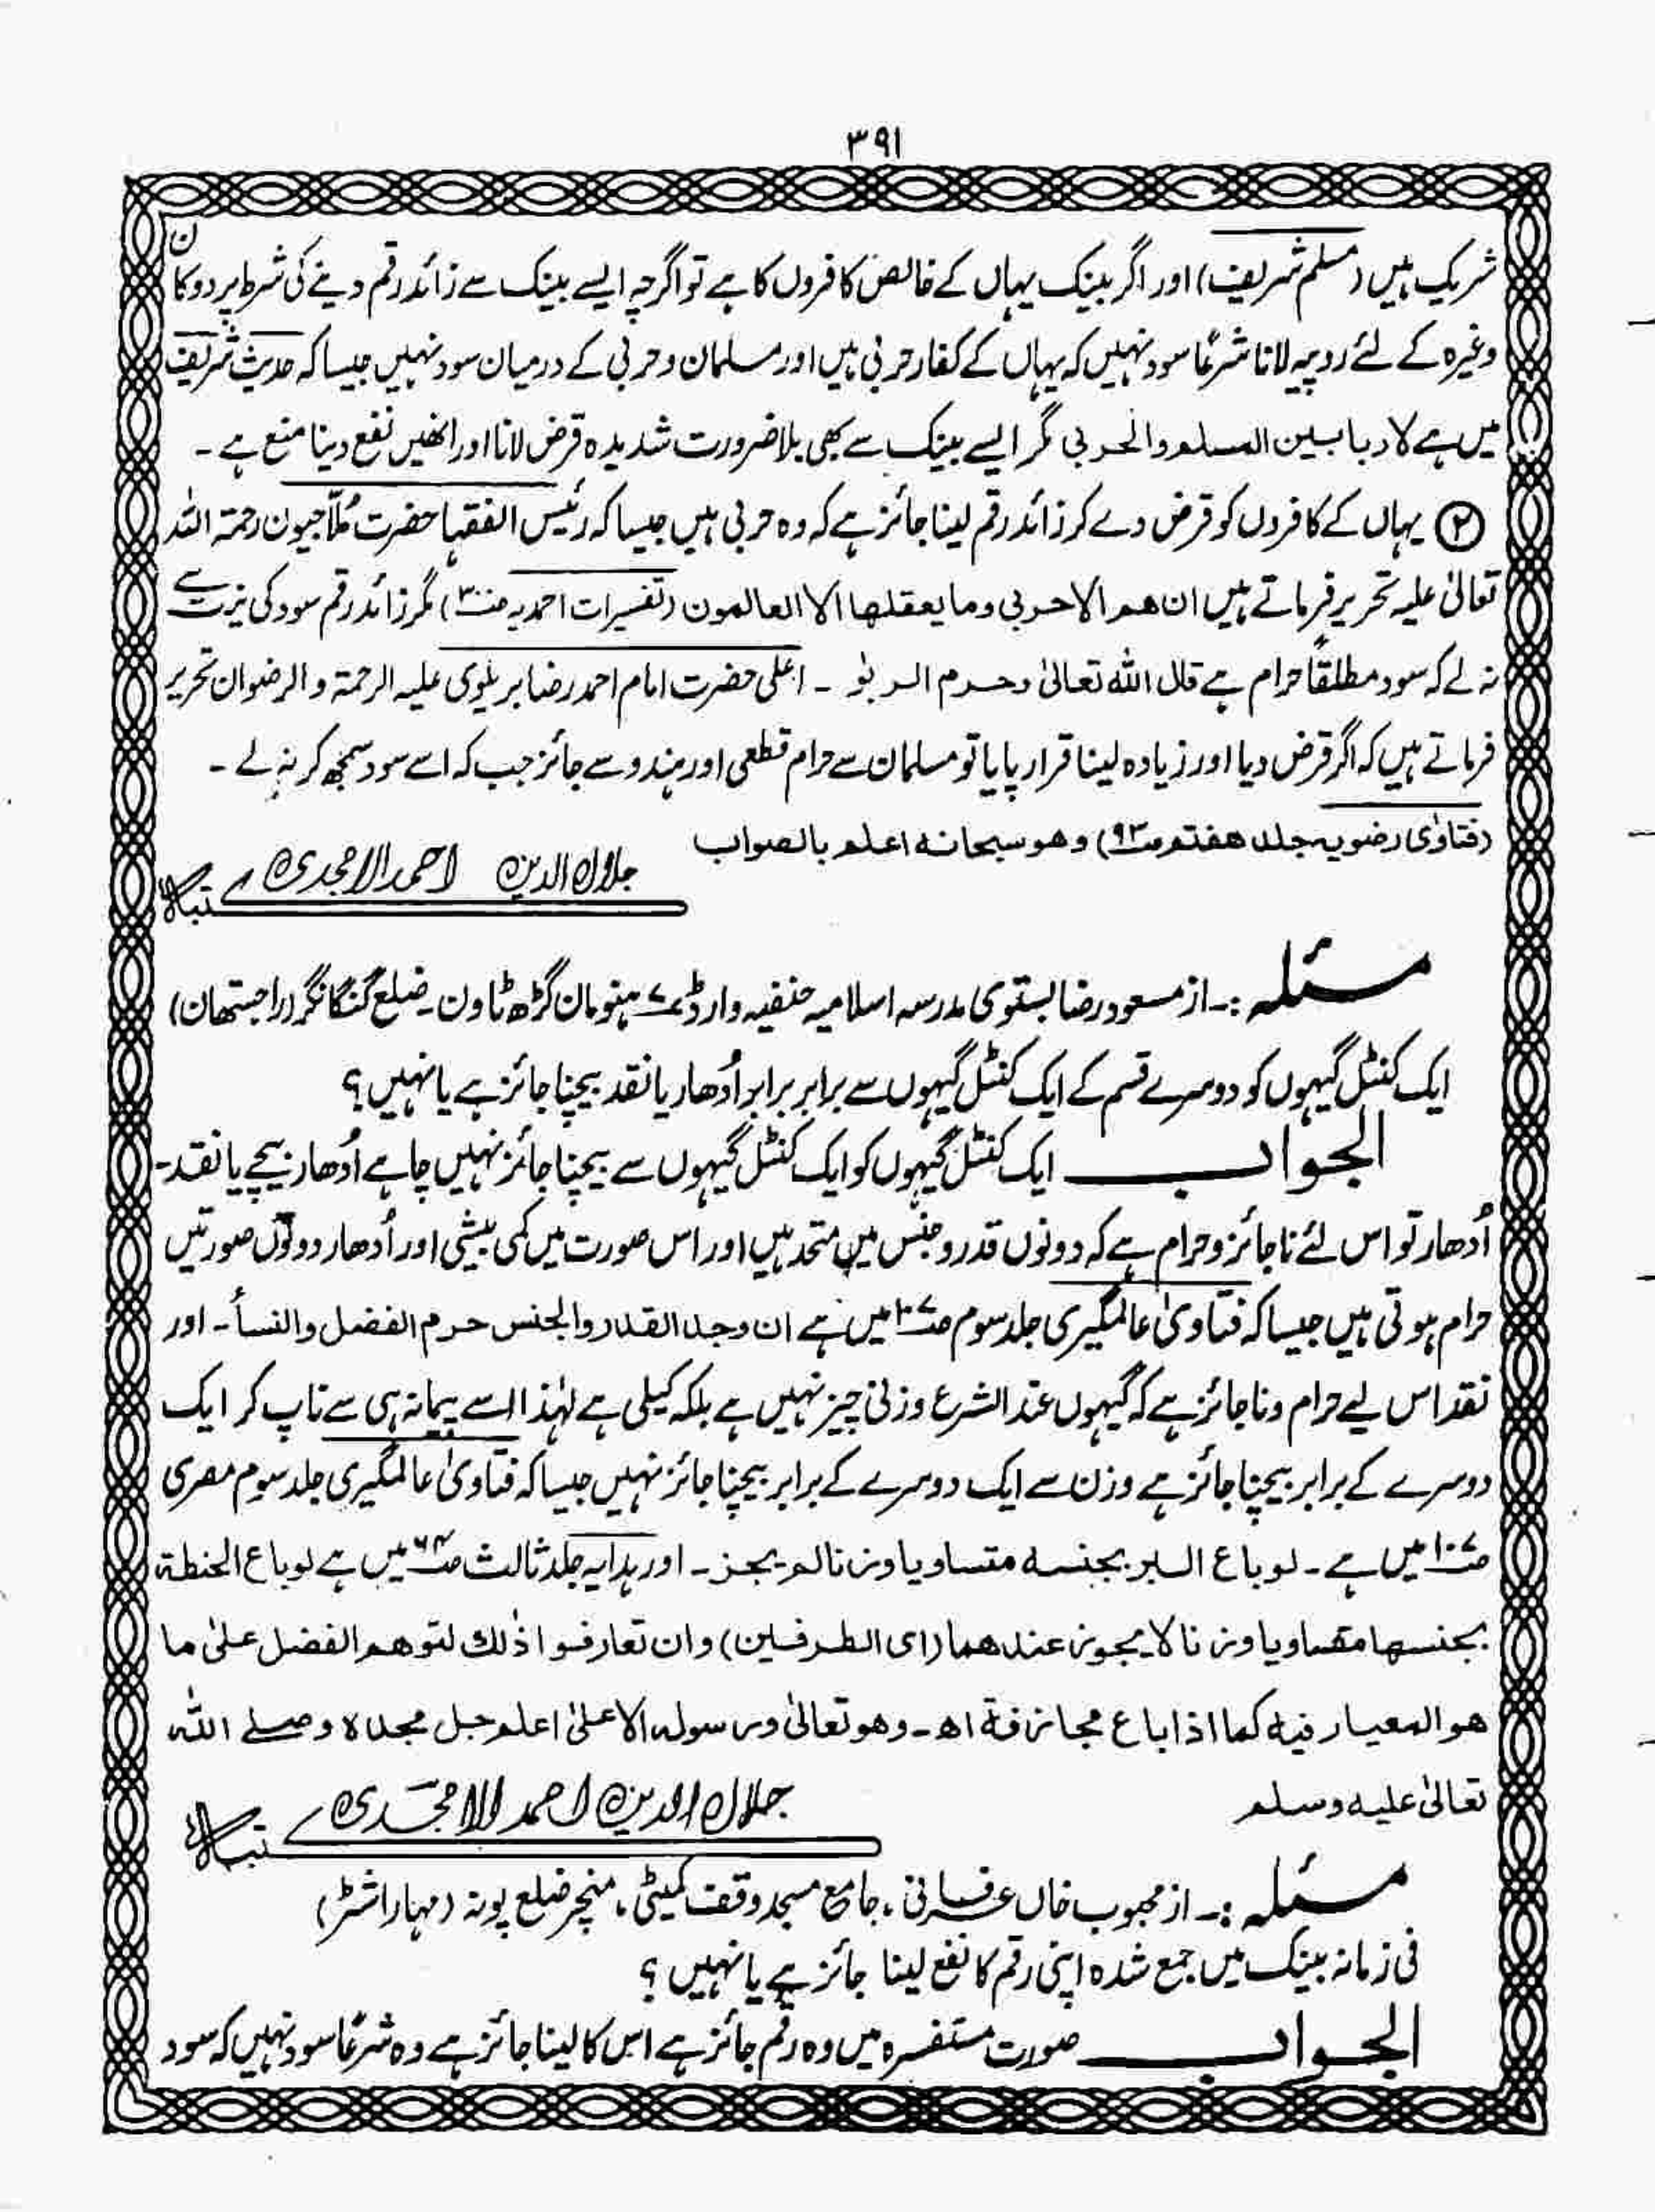 ۳۹۱
شریک ہیں (مسلم شریف) اور اگر بینک یہاں کے خالص کافروں کا ہے تو اگرچہ ایسے بینک سے زائد رقم دینے کی شرط پر دوکان
وغیرہ کے لئے روپیہ لانا شرعًا سود نہیں کہ یہاں کے کفار حربی ہیں اور مسلمان و حربی کے درمیان سود نہیں جیسا کہ حدیث شریف
میں ہے لا ربا بین المسلم والحربی مگر ایسے بینک سے بھی بلا ضرورت شدیدہ قرض لانا اور انھیں نفع دینا منع ہے ۔
② یہاں کے کافروں کو قرض دے کر زائد رقم لینا جائز ہے کہ وہ حربی ہیں جیسا کہ رئیس الفقہا حضرت مُلّا جیون رحمۃ اللہ
تعالیٰ علیہ تحریر فرماتے ہیں ان ھم الا حربی وما یعقلھا الا العالمون (تفسیرات احمدیہ ص۳۰۰) مگر زائد رقم سود کی نیت سے
نہ لے کہ سود مطلقًا حرام ہے قال اللہ تعالیٰ وحرم الربٰو ۔ اعلی حضرت امام احمد رضا بریلوی علیہ الرحمۃ و الرضوان تحریر
فرماتے ہیں کہ اگر قرض دیا اور زیادہ لینا قرار پایا تو مسلمان سے حرام قطعی اور ہندو سے جائز جب کہ اسے سود سمجھ کر نہ لے ۔
(فتاوٰی رضویہ جلد ھفتم ص۹۳) وھو سبحانہ اعلم بالصواب
جلال الدین احمد الامجدی کتبہ
مسئلہ :۔ از مسعود رضا بستوی مدرسہ اسلامیہ حنفیہ وارڈ ۷ ہنومان گڑھ ٹاون۔ ضلع گنگا نگر (راجستھان)
ایک کنٹل گیہوں کو دوسرے قسم کے ایک کنٹل گیہوں سے برابر برابر اُدھار یا نقد بیچنا جائز ہے یا نہیں ؟
الجواب ـــــ ایک کنٹل گیہوں کو ایک کنٹل گیہوں سے بیچنا جائز نہیں چاہے اُدھار بیچے یا نقد۔
اُدھار تو اس لئے ناجائز و حرام ہے کہ دونوں قدر و جنس میں متحد ہیں اور اس صورت میں کمی بیشی اور اُدھار دونوں صورتیں
حرام ہوتی ہیں جیسا کہ فتاویٰ عالمگیری جلد سوم ص۱۰۷ میں ہے ان وجد القدر والجنس حرم الفضل والنسأ۔ اور
نقد اس لیے حرام و ناجائز ہے کہ گیہوں عند الشرع وزنی چیز نہیں ہے بلکہ کیلی ہے لہٰذا اسے پیمانہ ہی سے ناپ کر ایک
دوسرے کے برابر بیچنا جائز ہے وزن سے ایک دوسرے کے برابر بیچنا جائز نہیں جیسا کہ فتاویٰ عالمگیری جلد سوم مصری
ص۱۰۷ میں ہے ۔ لو باع البر بجنسہ متساویا وزنا لم یجز ۔ اور ہدایہ جلد ثالث ص۶۴ میں ہے لو باع الحنطۃ
بجنسھا متساویا وزنا لا یجوز عندھما (ای الطرفین) وان تعارفوا ذٰلك لتوھم الفضل علیٰ ما
ھو المعیار فیہ کما اذا باع مجازفۃ اھ ۔ وھو تعالیٰ ورسولہ الاعلیٰ اعلم جل مجدہ وصلے اللہ
تعالیٰ علیہ وسلم
جلال الدین احمد الامجدی کتبہ
مسئلہ :۔ از محبوب خاں ، جامع مسجد وقف کمیٹی ، منچر ضلع پونہ (مہاراشٹر)
فی زمانہ بینک میں جمع شدہ اپنی رقم کا نفع لینا جائز ہے یا نہیں ؟
الجواب ـــــ صورت مستفسرہ میں وہ رقم جائز ہے اس کا لینا جائز ہے وہ شرعًا سود نہیں کہ سود